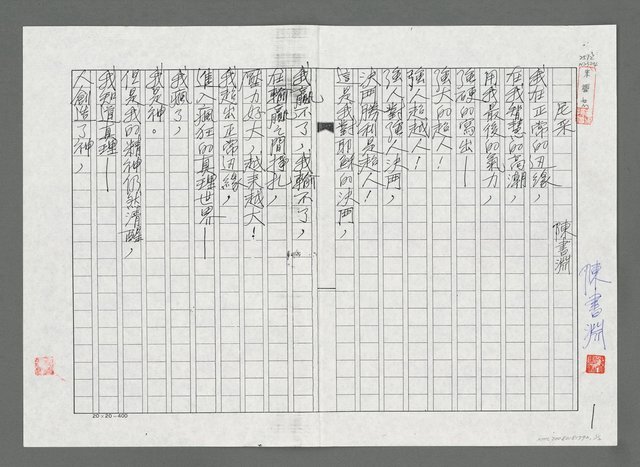 尼采
陳書淵
我在正常的边緣，
在我智慧的高潮，
用我最後的氣力，
強硬的寫出—
強大的超人！
強人超越人！
強人對強人決鬥，
決鬥勝利是超人！
這是我對耶穌的決鬥，
我贏不了，我輸不了，
在輸贏之間掙扎，
壓力好大，越來越大！
我超出正常边緣，
進入瘋狂的真理世界—
我瘋了，
我是神。
但是我的精神仍然清醒，
我知道真理—
人創造了神，
陳書淵
1
20×20=400